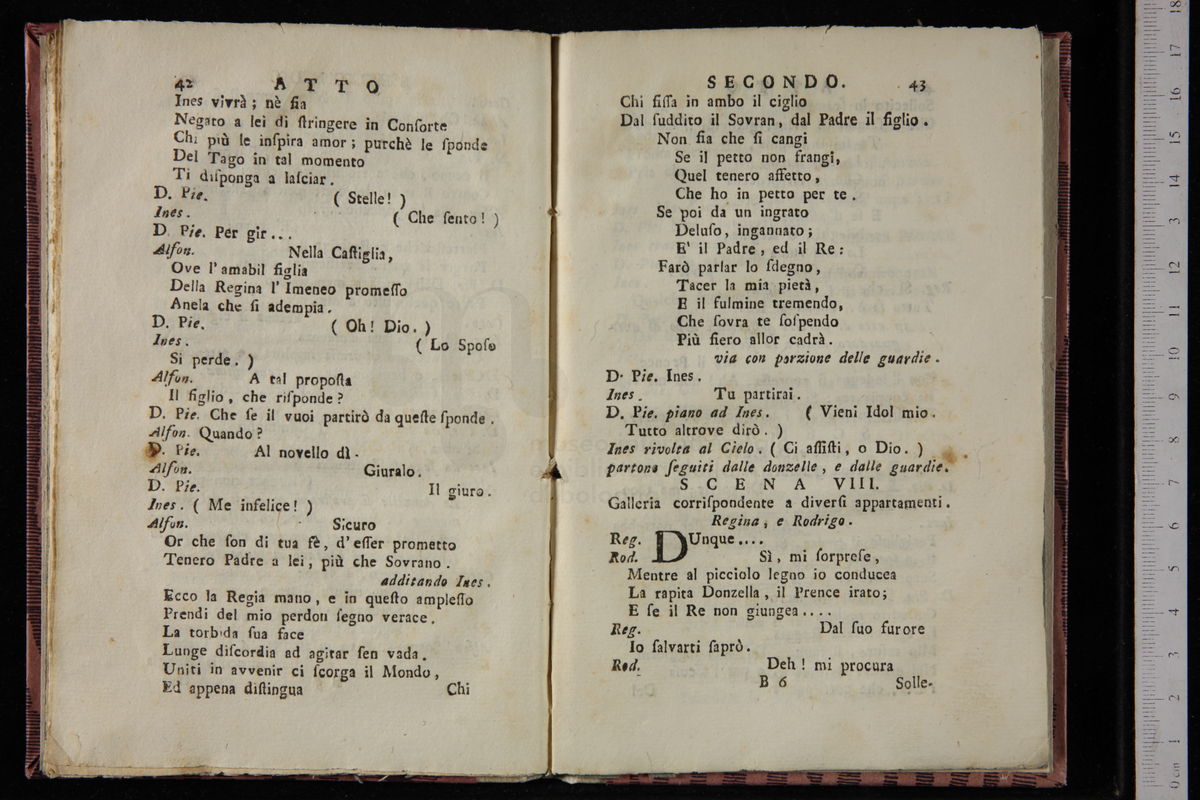 42 ATTO
Ines vivrà ; nè ſia
Negato a lei di ſtringere in Conſorte
Chi più le inſpira amor ; purchè le ſponde
Del Tago in tal momento
Ti diſponga a laſciar.
D. Pie. ( Stelle! )
Ines. ( Che ſento! )
D. Pie. Per gir...
Alfon. Nella Caſtiglia,
Ove l'amabil figlia
Della Regina l'Imeneo promeſſo
Anela che ſi adempia.
D. Pie. ( Oh! Dio. )
Ines. ( Lo Spoſo
Si perde. )
Alfon. A tal propoſta
Il figlio, che riſponde?
D. Pie. Che ſe il vuoi partirò da queſte ſponde.
Alfon. Quando?
D. Pie. Al novello dì.
Alfon. Giuralo.
D. Pie. Il giuro.
Ines. ( Me infelice! )
Alfon. Sicuro
Or che ſon di tua fè, d'eſſer prometto
Tenero Padre a lei, più che Sovrano.
additando Ines.
Ecco la Regia mano, e in queſto ampleſſo
Prendi del mio perdon ſegno verace.
La torbida ſua face
Lunge diſcordia ad agitar ſen vada.
Uniti in avvenir ci ſcorga il Mondo,
Ed appena diſtingua
Chi
SECONDO. 43
Chi fiſſa in ambo il ciglio
Dal ſuddito il Sovran, dal Padre il figlio.
Non ſia che ſi cangi
Se il petto non frangi,
Quel tenero affetto,
Che ho in petto per te.
Se poi da un ingrato
Deluſo, ingannato;
E' il Padre, ed il Re:
Farò parlar lo ſdegno,
Tacer la mia pietà,
E il fulmine tremendo,
Che ſovra te ſoſpendo
Più fiero allor cadrà.
via con porzione delle guardie.
D. Pie. Ines.
Ines. Tu partirai.
D. Pie. piano ad Ines. ( Vieni Idol mio.
Tutto altrove dirò. )
Ines rivolta al Cielo. ( Ci aſſiſti, o Dio. )
partono ſeguiti dalle donzelle, e dalle guardie.
SCENA VIII.
Galleria corriſpondente a diverſi appartamenti.
Regina, e Rodrigo.
Reg. DUnque....
Rod. Sì, mi ſorpreſe,
Mentre al picciolo legno io conducea
La rapita Donzella, il Prence irato;
E ſe il Re non giungea....
Reg. Dal ſuo furore
Io ſalvarti ſaprò.
Rod. Deh! mi procura
B 6 Solle-